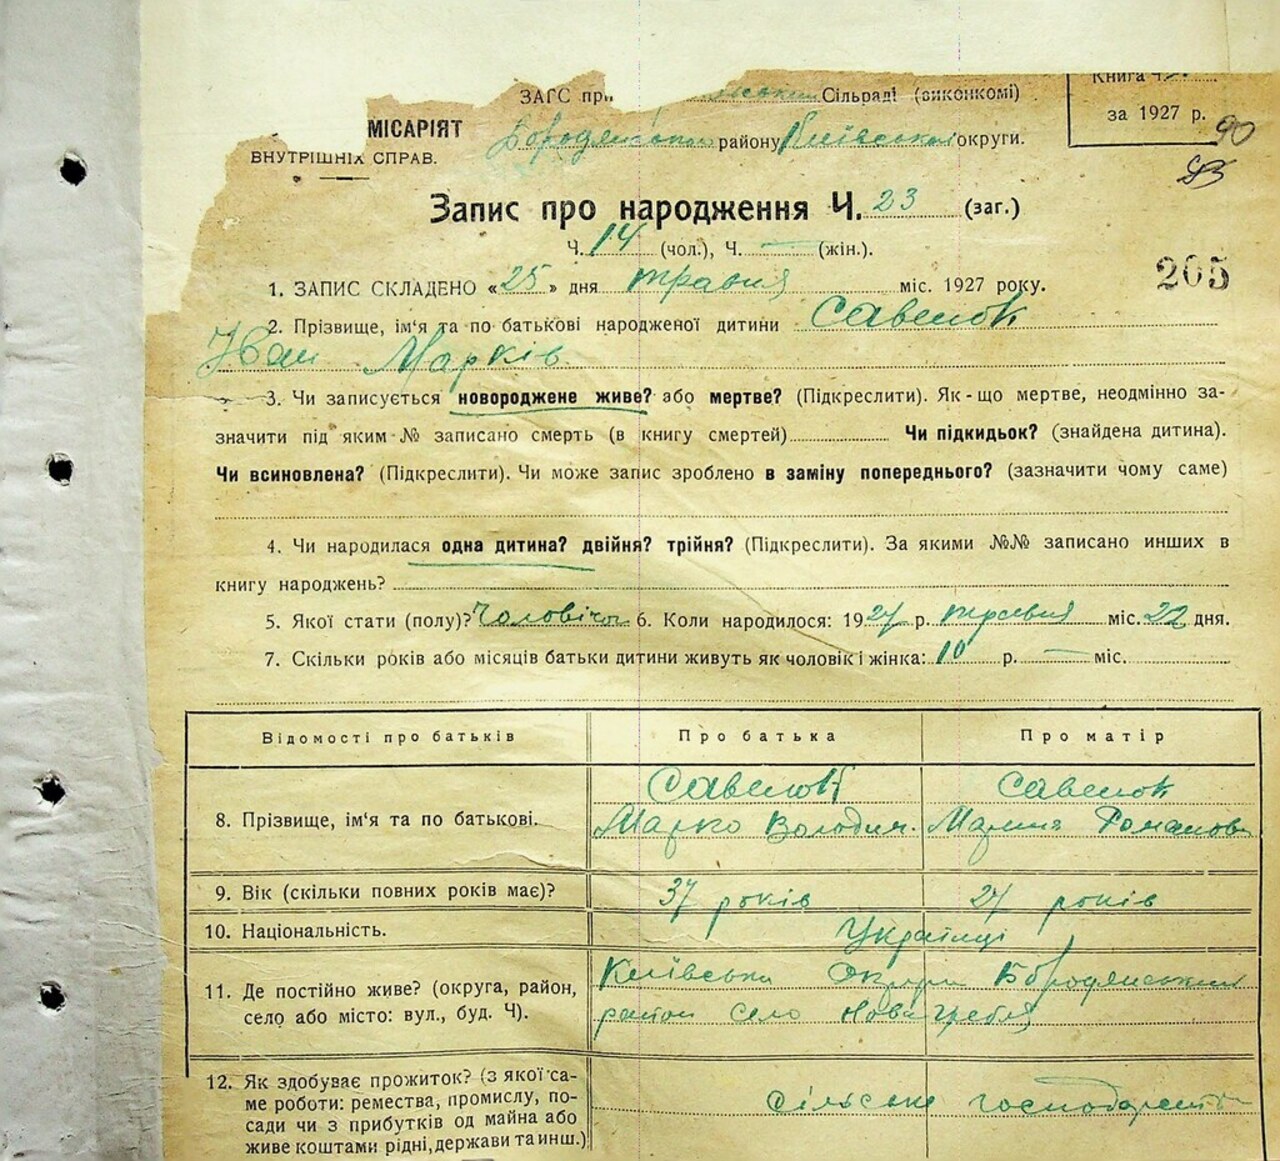 Книга
ЗАГС при Сільраді (виконкомі)
за 1927 р.
90
МІСАРІЯТ
Бородянського району Київської округи.
ВНУТРІШНІХ СПРАВ.
Запис про народження Ч. 23 (заг.)
Ч. 14 (чол.), Ч. — (жін.).
205
1. ЗАПИС СКЛАДЕНО «25» дня травня міс. 1927 року.
2. Прізвище, ім'я та по батькові народженої дитини Савенок
Іван Марків
3. Чи записується новороджене живе? або мертве? (Підкреслити). Як-що мертве, неодмінно за-
значити під яким № записано смерть (в книгу смертей) Чи підкидьок? (знайдена дитина).
Чи всиновлена? (Підкреслити). Чи може запис зроблено в заміну попереднього? (зазначити чому саме)
4. Чи народилася одна дитина? двійня? трійня? (Підкреслити). За якими №№ записано инших в
книгу народжень?
5. Якої стати (полу)? Чоловічої 6. Коли народилося: 1927 р. травня міс. 22 дня.
7. Скільки років або місяців батьки дитини живуть як чоловік і жінка: 10 р. — міс.
Відомості про батьків Про батька Про матір
Савенок Савенок
8. Прізвище, ім'я та по батькові. Марко Володим. Марина Романовн
9. Вік (скільки повних років має)? 37 років 27 років
10. Національність. Українці
Київська Округа Бородянський
11. Де постійно живе? (округа, район,
село або місто: вул., буд. Ч). район село Нова гребля
12. Як здобуває прожиток? (з якої са-
ме роботи: ремества, промислу, по-
сади чи з прибутків од майна або
живе коштами рідні, держави та инш.)
сільське господарство